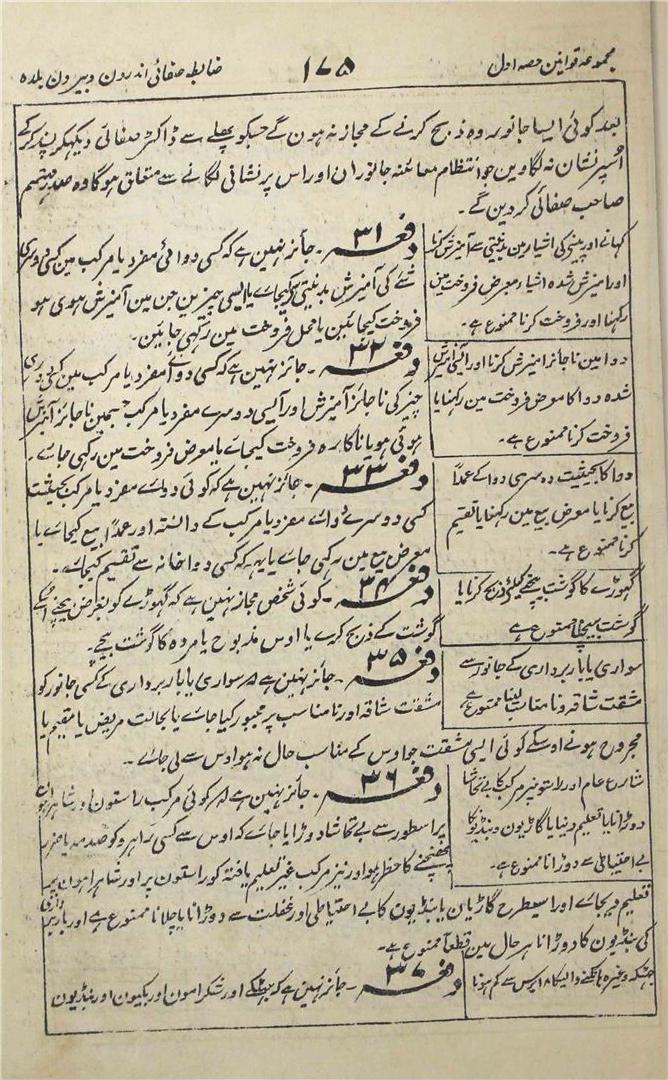 مجموعہ قوانین حصہ اول
۱۷۵
ضابطہ صفائی اندرون و بیرون بلدہ
بعد کوئی ایسا جانور وہ ذبح کرنے کے مجاز نہ ہون گے جسکو پہلے سے ڈاکٹر صفائی دیکھکر پسند کرکے
اُسپر نشان نہ لگاوین جو انتظام معائنہ جانوران اور اس پر نشانی لگانے سے متعلق ہوگا وہ صدر مہتمم
صاحب صفائی کردین گے۔
کہانے اور پینے کی اشیا مین بدنیتی سے آمیزش کرنا
اور آمیزش شدہ اشیا معرض فروخت مین
رکہنا اور فروخت کرنا ممنوع ہے۔
دفعہ ۳۱۔ جائز نہین ہے کہ کسی دوائی مفرد یا مرکب مین کسی دوسری
شئے کی آمیزش بدنیتی کیجاے یا ایسی چیزین جن مین آمیزش ہوی ہو
فروخت کیجائین یا محل فروخت مین رکہی جائین۔
دوا مین ناجائز آمیزش کرنا اور آمیزش
شدہ دوا کا معرض فروخت مین رکہنا یا
فروخت کرنا ممنوع ہے۔
دفعہ ۳۲۔ جائز نہین ہے کہ کسی دواے مفرد یا مرکب مین کسی دوسری
چیز کی ناجائز آمیزش اور ایسی دوسرے مفرد یا مرکب جسمین ناجائز آمیزش
ہوئی ہو یا ناکارہ فروخت کیجاے یا معرض فروخت مین رکہی جاے۔
دوا کا بحیثیت دوسری دوا کے عمداً
بیع کرنا یا معرض بیع مین رکہنا یا تقسیم
کرنا ممنوع ہے۔
دفعہ ۳۳۔ جائز نہین ہے کہ کوئی دواے مفرد یا مرکب بحیثیت
کسی دوسرے دواے مفرد یا مرکب کے دانستہ اور عمداً بیع کیجاے یا
معرض بیع مین رکہی جاے یا یہہ کہ کسی دواخانہ سے تقسیم کیجاے۔
گہوڑے کا گوشت بیچنے کیلئے ذبح کرنا یا
گوشت بیچنا ممنوع ہے
دفعہ ۳۴۔ کوئی شخص مجاز نہین ہے کہ گہوڑے کو بغرض بیچنے اسکے
گوشت کے ذبح کرے یا اوس مذبوح یا مردہ کا گوشت بیچے۔
سواری یا باربرداری کے جانور سے
مشقت شاقہ و نامناسب لینا ممنوع ہے
دفعہ ۳۵۔ جائز نہین ہے کہ سواری یا باربرداری کے کسی جانور کو
مشقت شاقہ اور نامناسب پر مجبور کیا جاے یا بحالت مریض یا سقیم یا
مجروح ہونے اوسکے کوئی ایسی مشقت جو اوس کے مناسب حال نہ ہو اوس سے لی جاے۔
شارع عام اور راستونپر مرکب کا بے تحاشا
دوڑانا یا تعلیم دینا یا گاڑیون و بنڈیونکا
بے احتیاطی سے دوڑانا ممنوع ہے۔
دفعہ ۳۶۔ جائز نہین ہے کہ کوئی مرکب راستون اور شاہراہون
پر اسطور سے بے تحاشا دوڑایا جاے کہ اوس سے کسی راہرو کو صدمہ یا ضرر
پہنچنے کا خطر ہو اور نیز مرکب غیر تعلیم یافتہ کو راستون پر اور شاہراہون پر
تعلیم دیجاے اور اسیطرح گاڑیان یا بنڈیون کا بے احتیاطی اور غفلت سے دوڑانا یا چلانا ممنوع ہے اور باربرداری
کی بنڈیون کا دوڑانا ہر حال مین قطعاً ممنوع ہے۔
جہٹکہ وغیرہ ہانکنے والیکا ۱۸ برس سے کم ہونا
دفعہ ۳۷۔ جائز نہین ہے کہ جہٹکے اور شکرامون اور بگیون اور بنڈیون